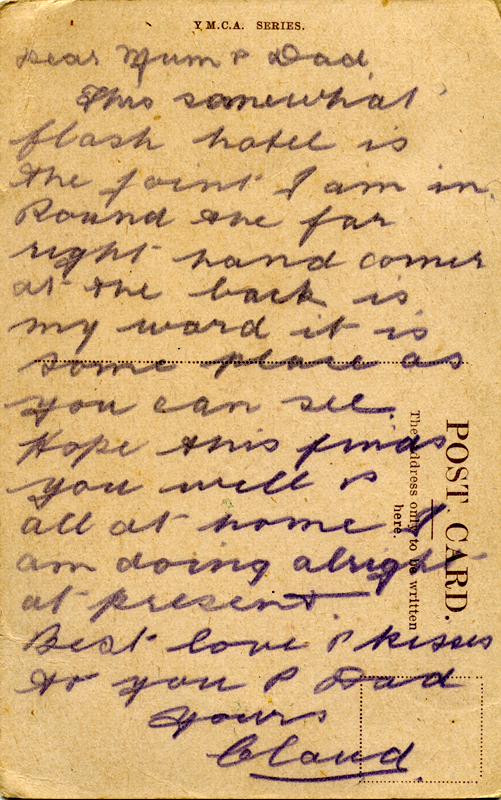 Y.M.C.A. SERIES.
Dear Mum & Dad,
This somewhat
flash hotel is
the joint I am in.
Round the far
right hand corner
at the back is
my ward it is
some place as
you can see.
Hope this finds
you well &
all at home I
am doing alright
at present
Best love & kisses
to you & Dad
Yours
Claud.
POST CARD.
The address only to be written
here.